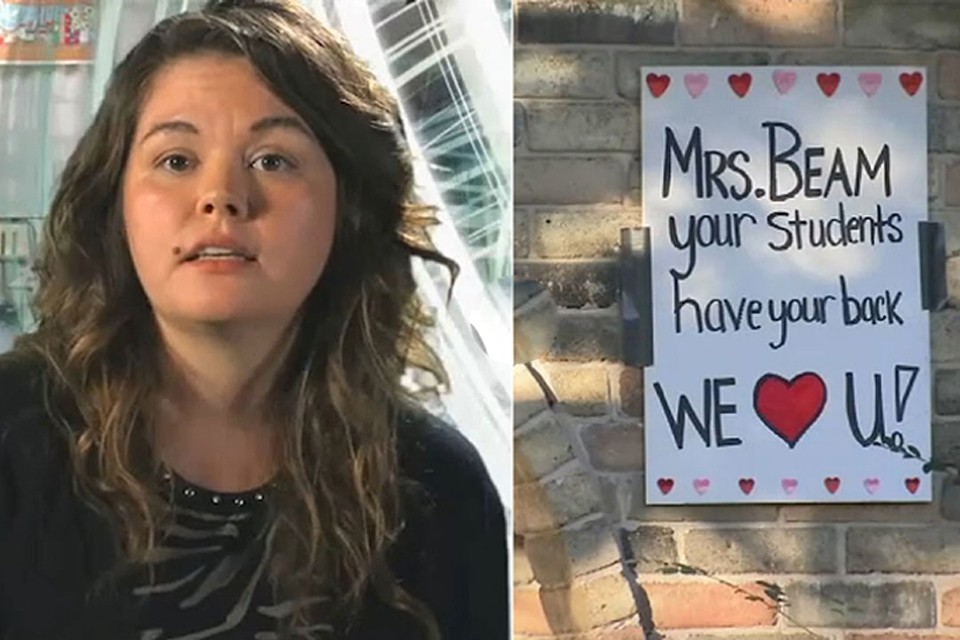 Mrs. Beam
your Students
have your back
WE ❤ U!